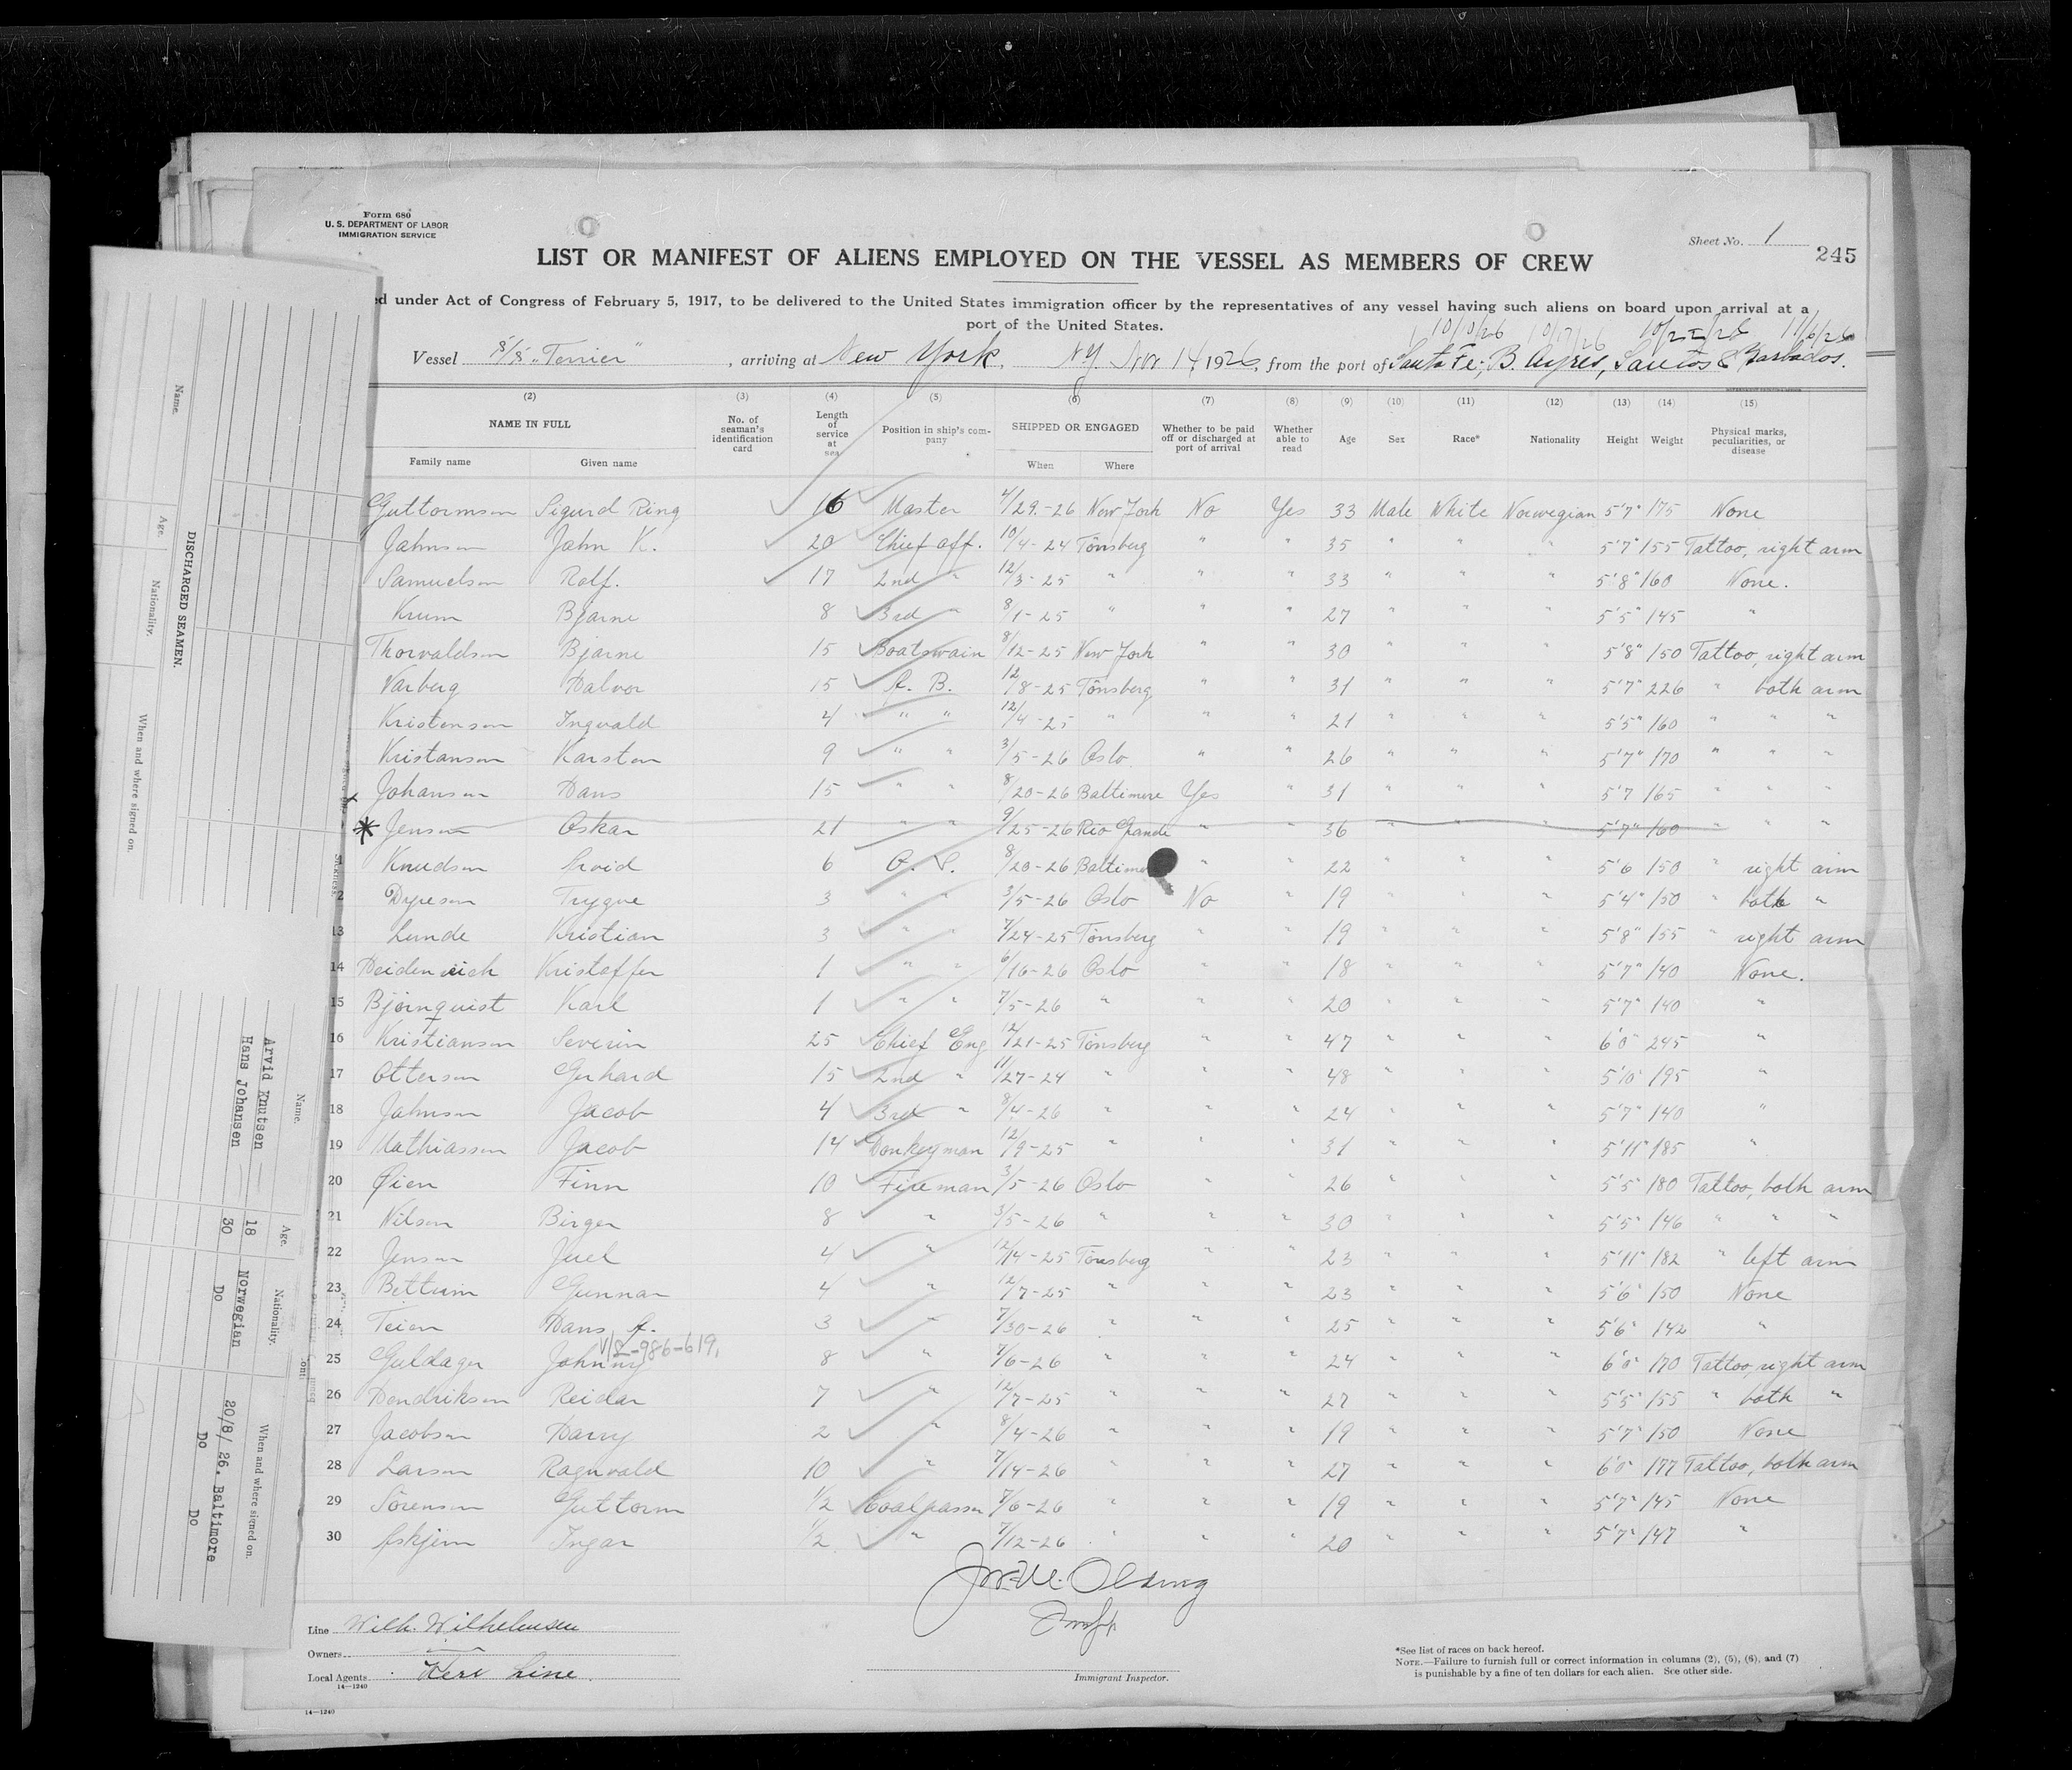 Form 680
U. S. DEPARTMENT OF LABOR
IMMIGRATION SERVICE
Sheet No. 1
245
LIST OR MANIFEST OF ALIENS EMPLOYED ON THE VESSEL AS MEMBERS OF CREW
ed under Act of Congress of February 5, 1917, to be delivered to the United States immigration officer by the representatives of any vessel having such aliens on board upon arrival at a
port of the United States.
10/10/26 10/17/26 10/25/26 11/6/26
Vessel S/S „Terrier" , arriving at New York, N.Y. Nov 14, 1926, from the port of Santa Fe, B. Ayres, Santos & Barbados.
(2) (3) (4) (5) (6) (7) (8) (9) (10) (11) (12) (13) (14) (15)
NAME IN FULL No. of seaman's identification card Length of service at sea Position in ship's company SHIPPED OR ENGAGED Whether to be paid off or discharged at port of arrival Whether able to read Age Sex Race* Nationality Height Weight Physical marks, peculiarities, or disease
Family name Given name When Where
Guttormson Sigurd Ring 16 Master 4/29-26 New York No Yes 33 Male White Norwegian 5'7" 175 None
Johnson John K. 20 Chief off. 10/4-24 Tönsberg " " 35 " " " 5'7" 155 Tattoo, right arm
Samuelson Rolf. 17 2nd " 12/3-25 " " " 33 " " " 5'8" 160 None.
Krum Bjarne 8 3rd " 8/1-25 " " " 27 " " " 5'5" 145 "
Thorvaldson Bjarne 15 Boatswain 8/12-25 New York " " 30 " " " 5'8" 150 Tattoo, right arm
Varberg Halvor 15 A. B. 12/8-25 Tönsberg " " 31 " " " 5'7" 226 " both arm
Kristenson Ingvald 4 " " 12/4-25 " " " 21 " " " 5'5" 160 " " "
Kristanson Karsten 9 " " 3/5-26 Oslo " " 26 " " " 5'7" 170 " " "
Johanson Hans 15 " " 8/20-26 Baltimore Yes " 31 " " " 5'7 165 " " "
* Jenson Oskar 21 " " 9/25-26 Rio Grande " " 36 " " " 5'7" 160 " " "
Knudson Arvid 6 O. S. 8/20-26 Baltimo " " 22 " " " 5'6 150 " right arm
2 Dyreson Trygve 3 " " 3/5-26 Oslo No " 19 " " " 5'4" 150 " both "
13 Lunde Kristian 3 " " 7/24-25 Tönsberg " " 19 " " " 5'8" 155 " right arm
14 Heidenrich Kristoffer 1 " " 6/16-26 Oslo " " 18 " " " 5'7" 140 None.
15 Bjornquist Karl 1 " " 7/5-26 " " " 20 " " " 5'7" 140 "
16 Kristianson Severin 25 Chief Eng 12/21-25 Tönsberg " " 47 " " " 6'0" 245 "
17 Otterson Gerhard 15 2nd " 11/27-24 " " " 48 " " " 5'10" 195 "
18 Johnson Jacob 4 3rd " 8/4-26 " " " 24 " " " 5'7" 140 "
19 Mathiasson Jacob 14 Donkeyman 12/9-25 " " " 31 " " " 5'11" 185 "
20 Øien Finn 10 Fireman 3/5-26 Oslo " " 26 " " " 5'5" 180 Tattoo, both arm
21 Nilson Birger 8 " 3/5-26 " " " 30 " " " 5'5" 146 " " "
22 Jenson Juel 4 " 12/14-25 Tönsberg " " 23 " " " 5'11" 182 " left arm
23 Bettum Gunnar 4 " 12/7-25 " " " 23 " " " 5'6" 150 None
24 Teien Hans A. 3 " 7/30-26 " " " 25 " " " 5'6" 142 "
V/2-986-619,
25 Guldager Johnny 8 " 7/6-26 " " " 24 " " " 6'0" 170 Tattoo, right arm
26 Hendrikson Reidar 7 " 12/7-25 " " " 27 " " " 5'5" 155 " both "
27 Jacobson Harry 2 " 8/4-26 " " " 19 " " " 5'7" 150 None
28 Larson Ragnvald 10 " 7/14-26 " " " 27 " " " 6'0" 177 Tattoo, both arm
29 Sörenson Guttorm 1/2 Coalpasser 7/6-26 " " " 19 " " " 5'7" 145 None
30 Askjem Ingar 1/2 " 7/12-26 " " " 20 " " " 5'7" 147 "
Line Wilh. Wilhelmsen
Owners
Local Agents Kerr Line
14—1240
Immigrant Inspector.
*See list of races on back hereof.
NOTE.—Failure to furnish full or correct information in columns (2), (5), (6), and (7)
is punishable by a fine of ten dollars for each alien. See other side.
14—1240
DISCHARGED SEAMEN.
Name. Age. Nationality. When and where signed on.
Name. Age. Nationality. When and where signed on.
Arvid Knutsen 18 Norwegian 20/8/ 26. Baltimore
Hans Johansen 30 Do Do Do